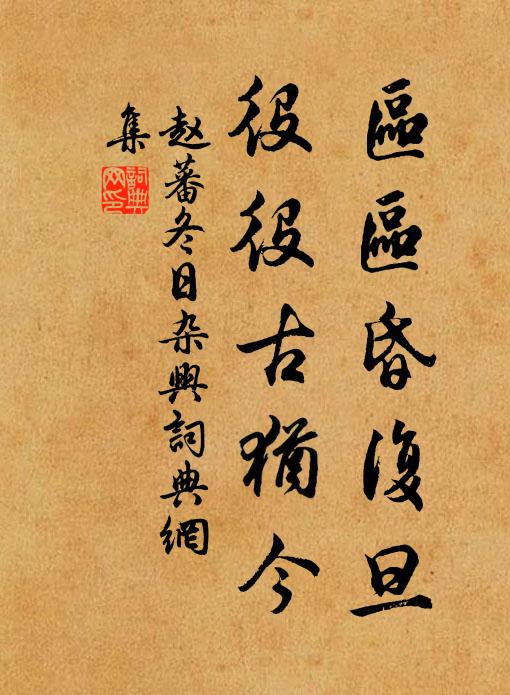 區區昏復旦
役役古猶今
赵蕃冬日杂興詞典網
集
詞典
网印